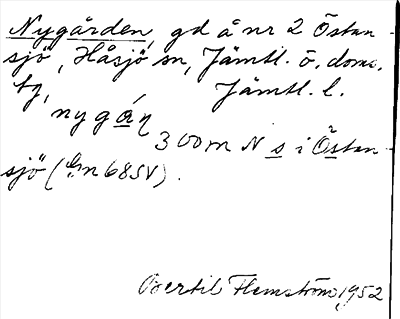 Nygården, gd å nr 2 Östan-
sjö, Håsjö sn, Jämtl. ö. doms.
tg, Jämtl. l.
nygáṇ
300 m N s i Östan-
sjö ( 68SV).
Bertil Flemström 1952